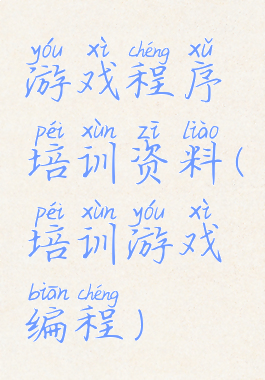 yóu xì chéng xǔ
游戏程序
péi xùn zī liào
培训资料(
péi xùn yóu xì
培训游戏
biān chéng
编程)